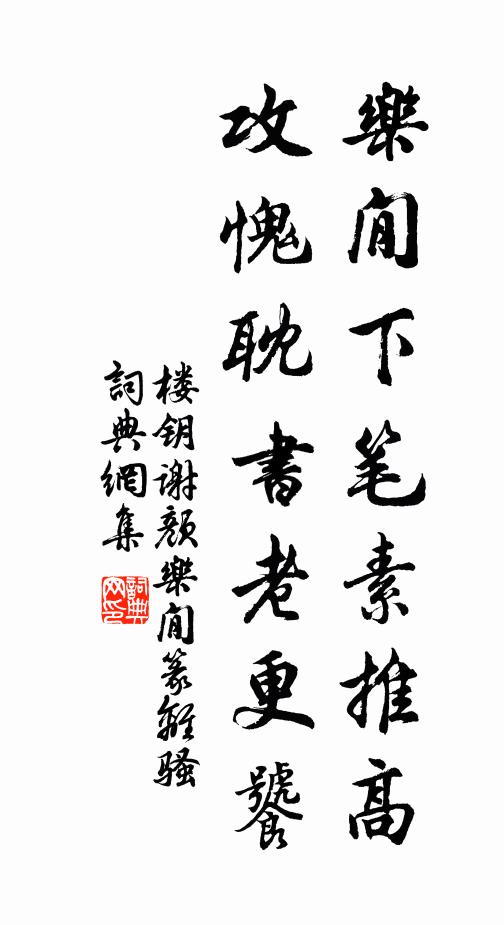 樂閒下笔素推高
攻愧耽書老更饕
楼钥谢颜樂閒篆離骚
詞典網集
詞典網印